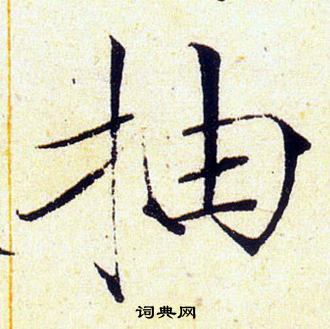 抽
词典网